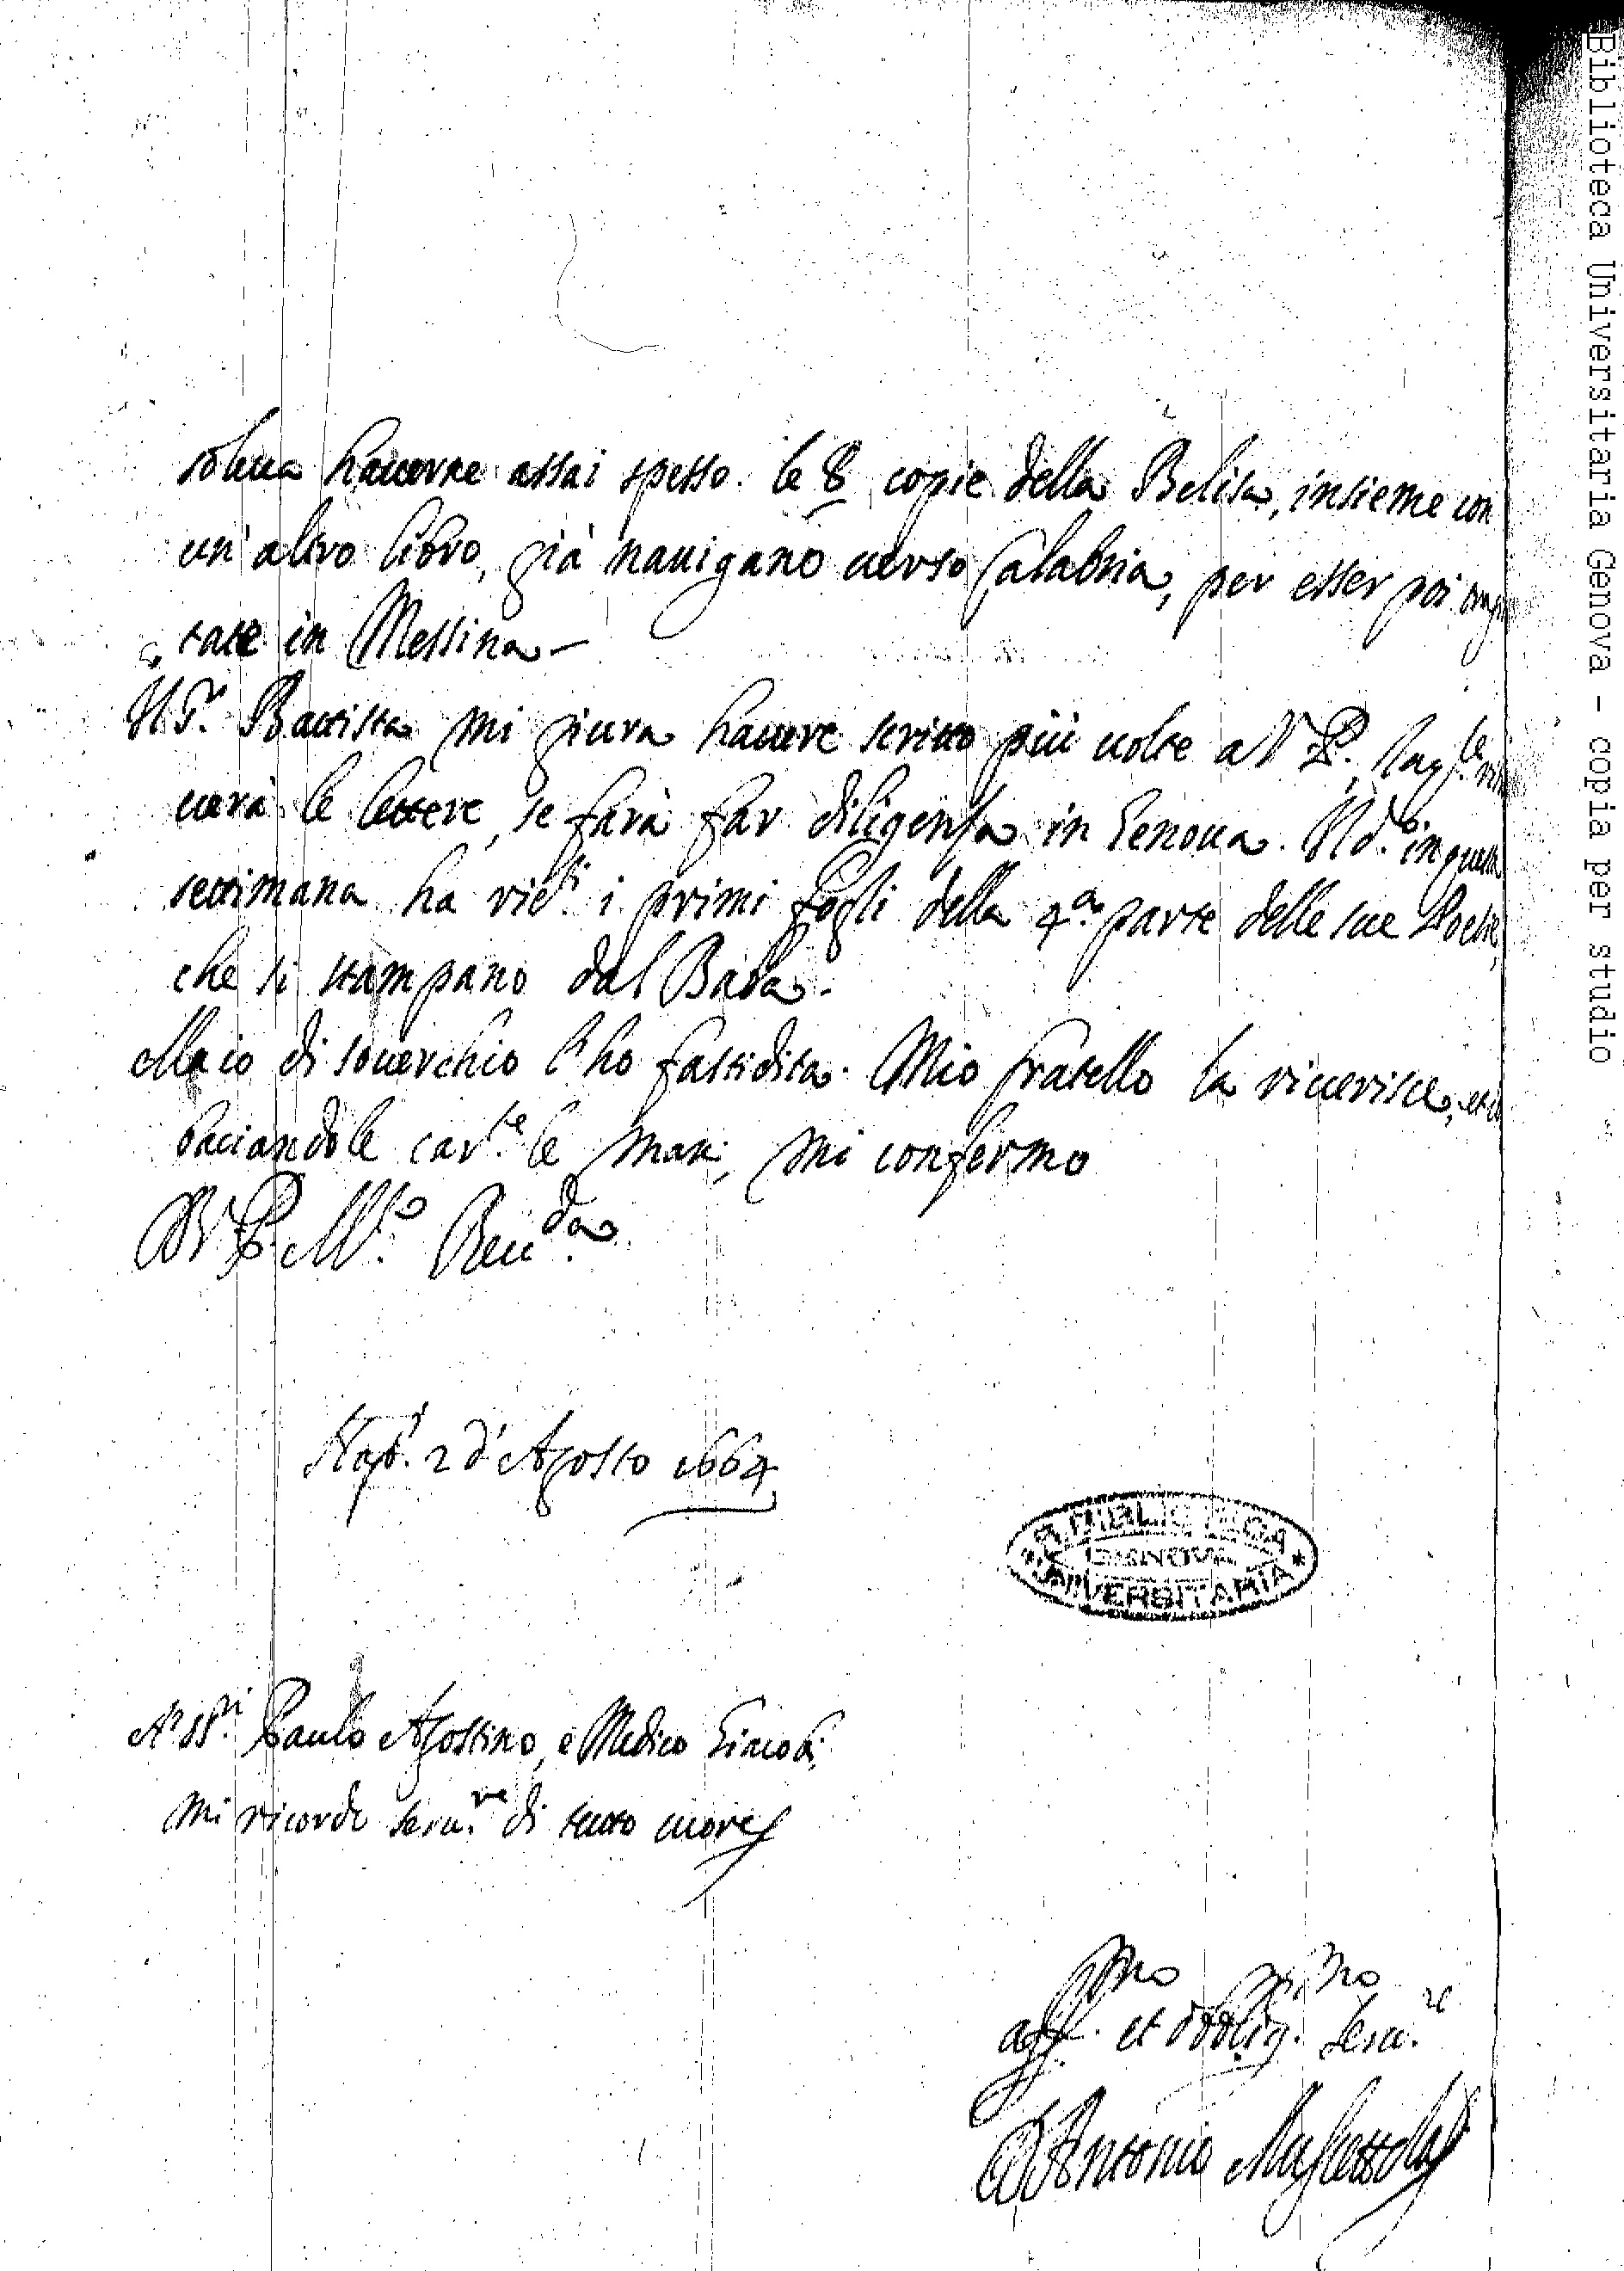 soleua hauerne assai spesso. le 8 copie della Belisa, insieme con
un' altro libro, già nauigano uerso Calabria, per esser poi
tate in Messina
Il Sr. Battista mi giura hauere scritto più uolte a V. P.,
uerà le lettere, se farà far diligenza in Genoua. Il do. in questa
settimana ha rictí. i primi fogli della 4a. parte delle sue Poesie,
che si stampano dal Baba.
Ma io di souerchio l'ho fastidita. Mio fratello la riuerisce, et io
baciandole carte. le mani, mi confermo
D V. P. Mto. Reuda.
Napi. 2 d'Agosto 1664
A' SSri. Paulo Agostino, e Medico Giacobi,
mi ricordo serure. di tutto cuore
affmo. et obbligmo. Serure.
D Antonio Muscettola
R. BIBLIOTECA
GENOVA
UNIVERSITARIA
Biblioteca Universitaria Genova - copia per studio